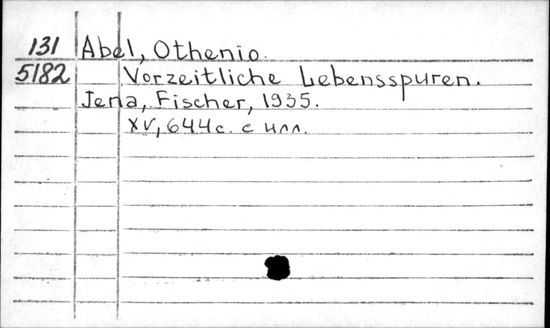 131 Abel, Othenio.
5182 Vorzeitliche Lebensspuren.
Jena, Fischer, 1935.
XV, 644с. с илл.